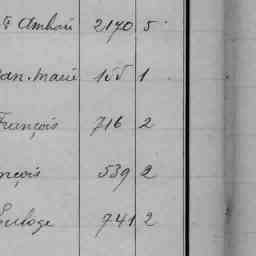 Ambroi 2170 5
an-Marie 155 1
François 716 2
nçois 539 2
Euloge 741 2